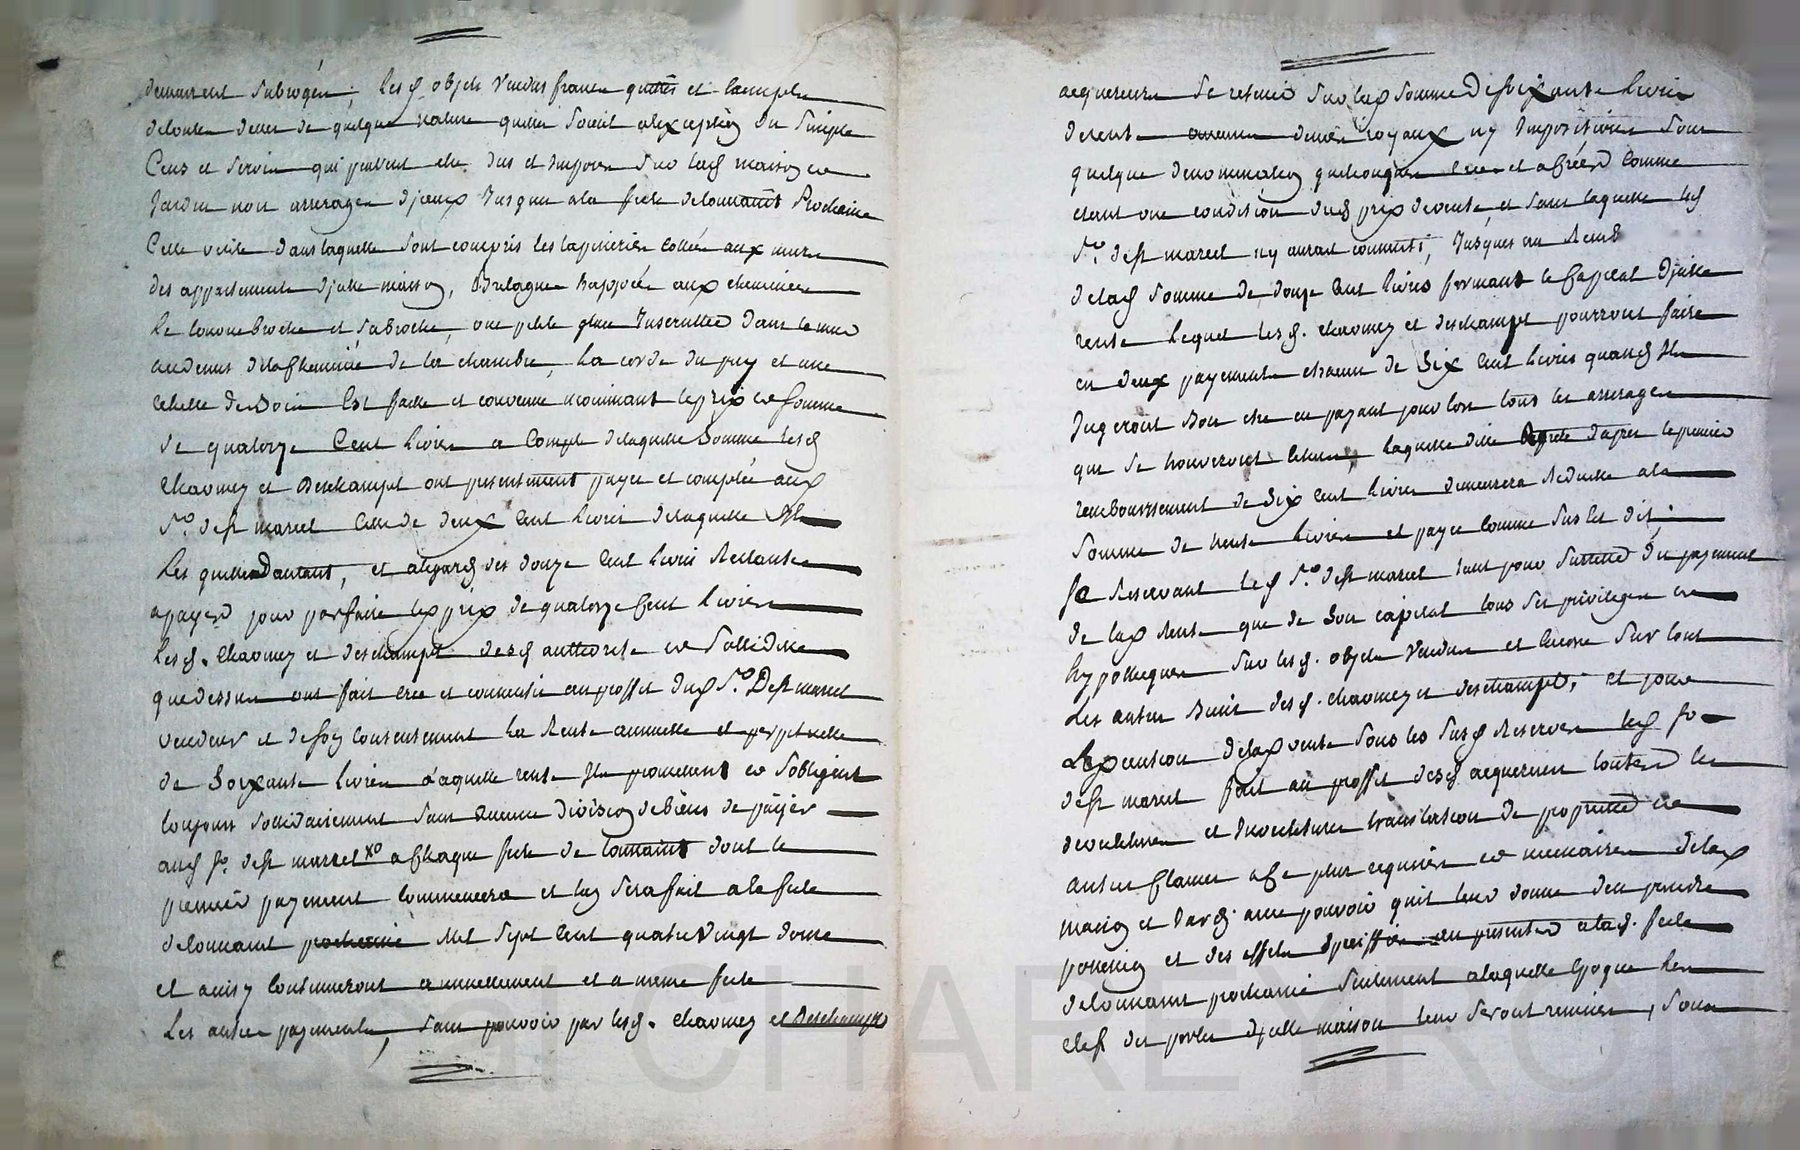 demeurent subrogés; lesd objets vendus francs quittes et Exempts
de toutes dettes de quelque nature quelles soient alexception du simple
Cens et servis qui peuvent etre dus et Imposés sur lesd maison et
Jardin non arrerages d'jceux Jusques ala fete deloussaint Prochaine
Cette vente dans laquelle sont compris les tapisseries collées aux murs
des appartements d'jcelle maison, aux cheminées
Le tournebroche et sa broche, une petite glace Inscrustée dans le mur
au dessus delacheminée de la chambre, La corde du puy et une
echelle de Bois Est faite et convenue moiennant le prix et somme
de quatorze Cent livres a Compte delaquelle somme lesd
Chaomez et Deschampt ont presentement payé et compté aud
Sr. dest marcel Celle de deux Cent livres delaquelle Il
les quitte Dautant, et alegard des douze Cent livres Restantes
apayer pour parfaire led prix de quatorze Cent livres
Lesd. Chaomez et deschampt desd authorité et sollidité
que dessus ont fait créé et constitué au proffit dud Sr. Dest marcel
vendeur et desoy Consentement La Rente annuelle et perpetuelle
de Soixante livres Laquelle rente Ils promettent et sobligent
toujours sollidairement sans aucune division debiens de paÿer
aud sr. dest marcel xo achaque fete de toussaint dont le
premier payement Commencera et luy sera fait ala fete
deloussaint prochaine Mil sept Cent quatre vingt douze
et ainsy Continueront annuellement et a meme fete
Les autres payements, sans pouvoir par lesd. Chaomez et Deschampt
acquereurs se retenir sur lad somme de soixante livres
de rente aucuns deniers royaux ny Impositions sous
quelque denomination quelconques et agréér Comme
etant une condition dud prix devente et sans laquelle led
Sr. dest marcel ny auroit consenti; Jusques au Remb
delad somme de douze Cent livres formant le Capital d'jcelle
rente lequel lesd. Chaomez et deschampt pourront faire
en deux payements chacun de Six Cent livres quand Ils
Jugeront Bon etre en payant pour lors tous les arrerages
qui se trouveront lechus, laquelle dite Rente dapres le premier
remboursement de Six Cent livres demeurera Reduitte ala
somme de trente livres et payée Comme sus Est dit;
se Reservant led Sr. dest marcel tant pour Surettéé du payement
de lad Rente que de Son capital tous ses privileges et
hypotheques sur lesd. objets vendus et Encore sur tout
les autres Biens desd. Chaomez et deschampt; et pour
LExecution delad vente sous les susd Reserves led sr
dest marcel fait au proffit desd acquereurs toutes les
devetitures et Investitures translation de proprietté et
autres Clauses ace plus requises et necessaires delad
maison et Jard. avec pouvoir quil leur donne den prendre
possession et des effets au present alad. fete
deloussaint prochaine seulement alaquelle Epoque les
clefs des portes d'jcelle maison leur seront remises, sous
CHAREYRON